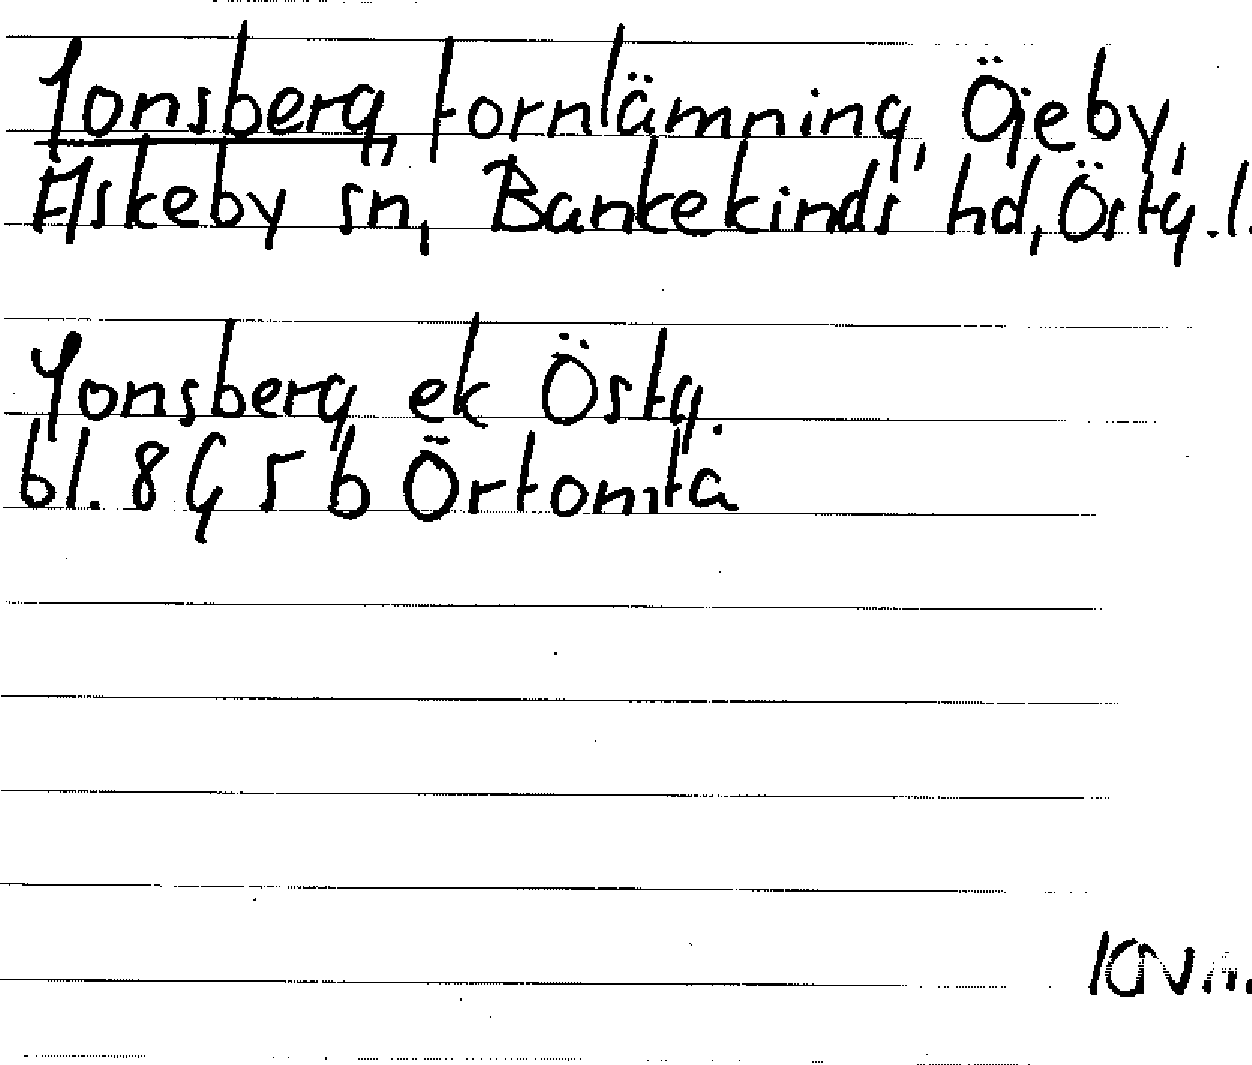 Jonsberg, fornlämning, Öjeby,
Askeby sn, Bankekinds hd, Östg.l.
Jonsberg ek Östg.
bl. 8G 5b Örtomta